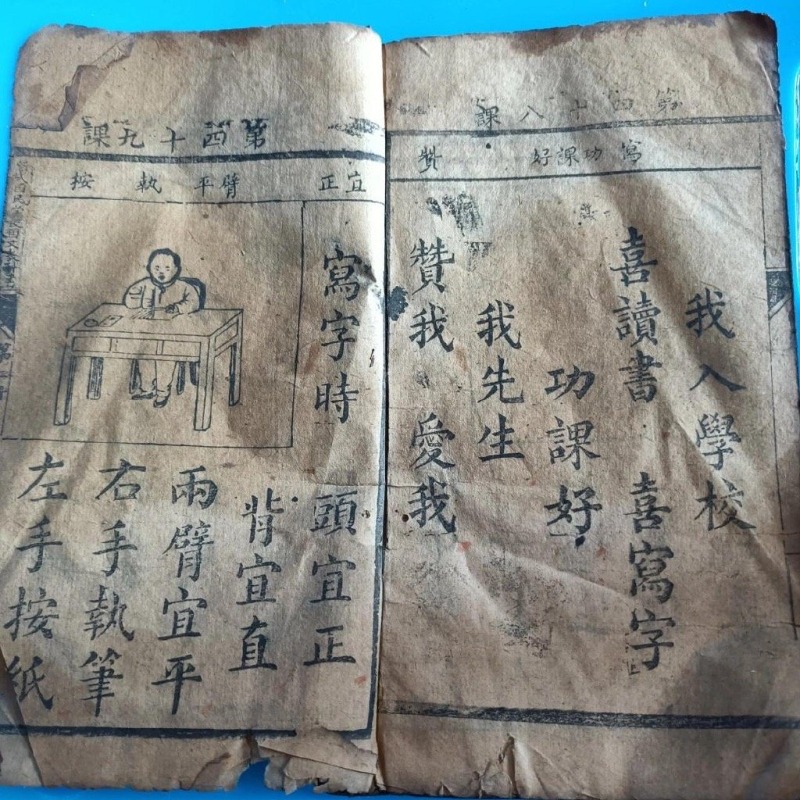 第四十八課
寫 功課好 贊
我入學校
喜讀書 喜寫字
功課好
我先生
贊我 愛我
第四十九課
宜正 臂平 執 按
寫字時
頭宜正
背宜直
兩臂宜平
右手執筆
左手按紙